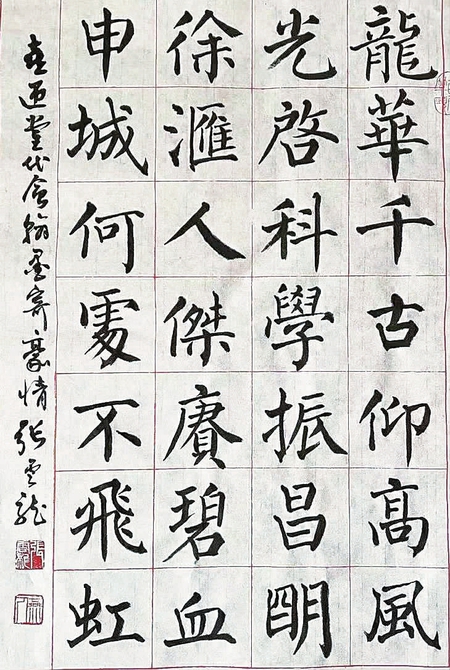 龍華千古仰高風
光啓科學振昌朙
徐滙人傑賡碧血
申城何處不飛虹
喜迎党代会翰墨寄豪情 张云龙